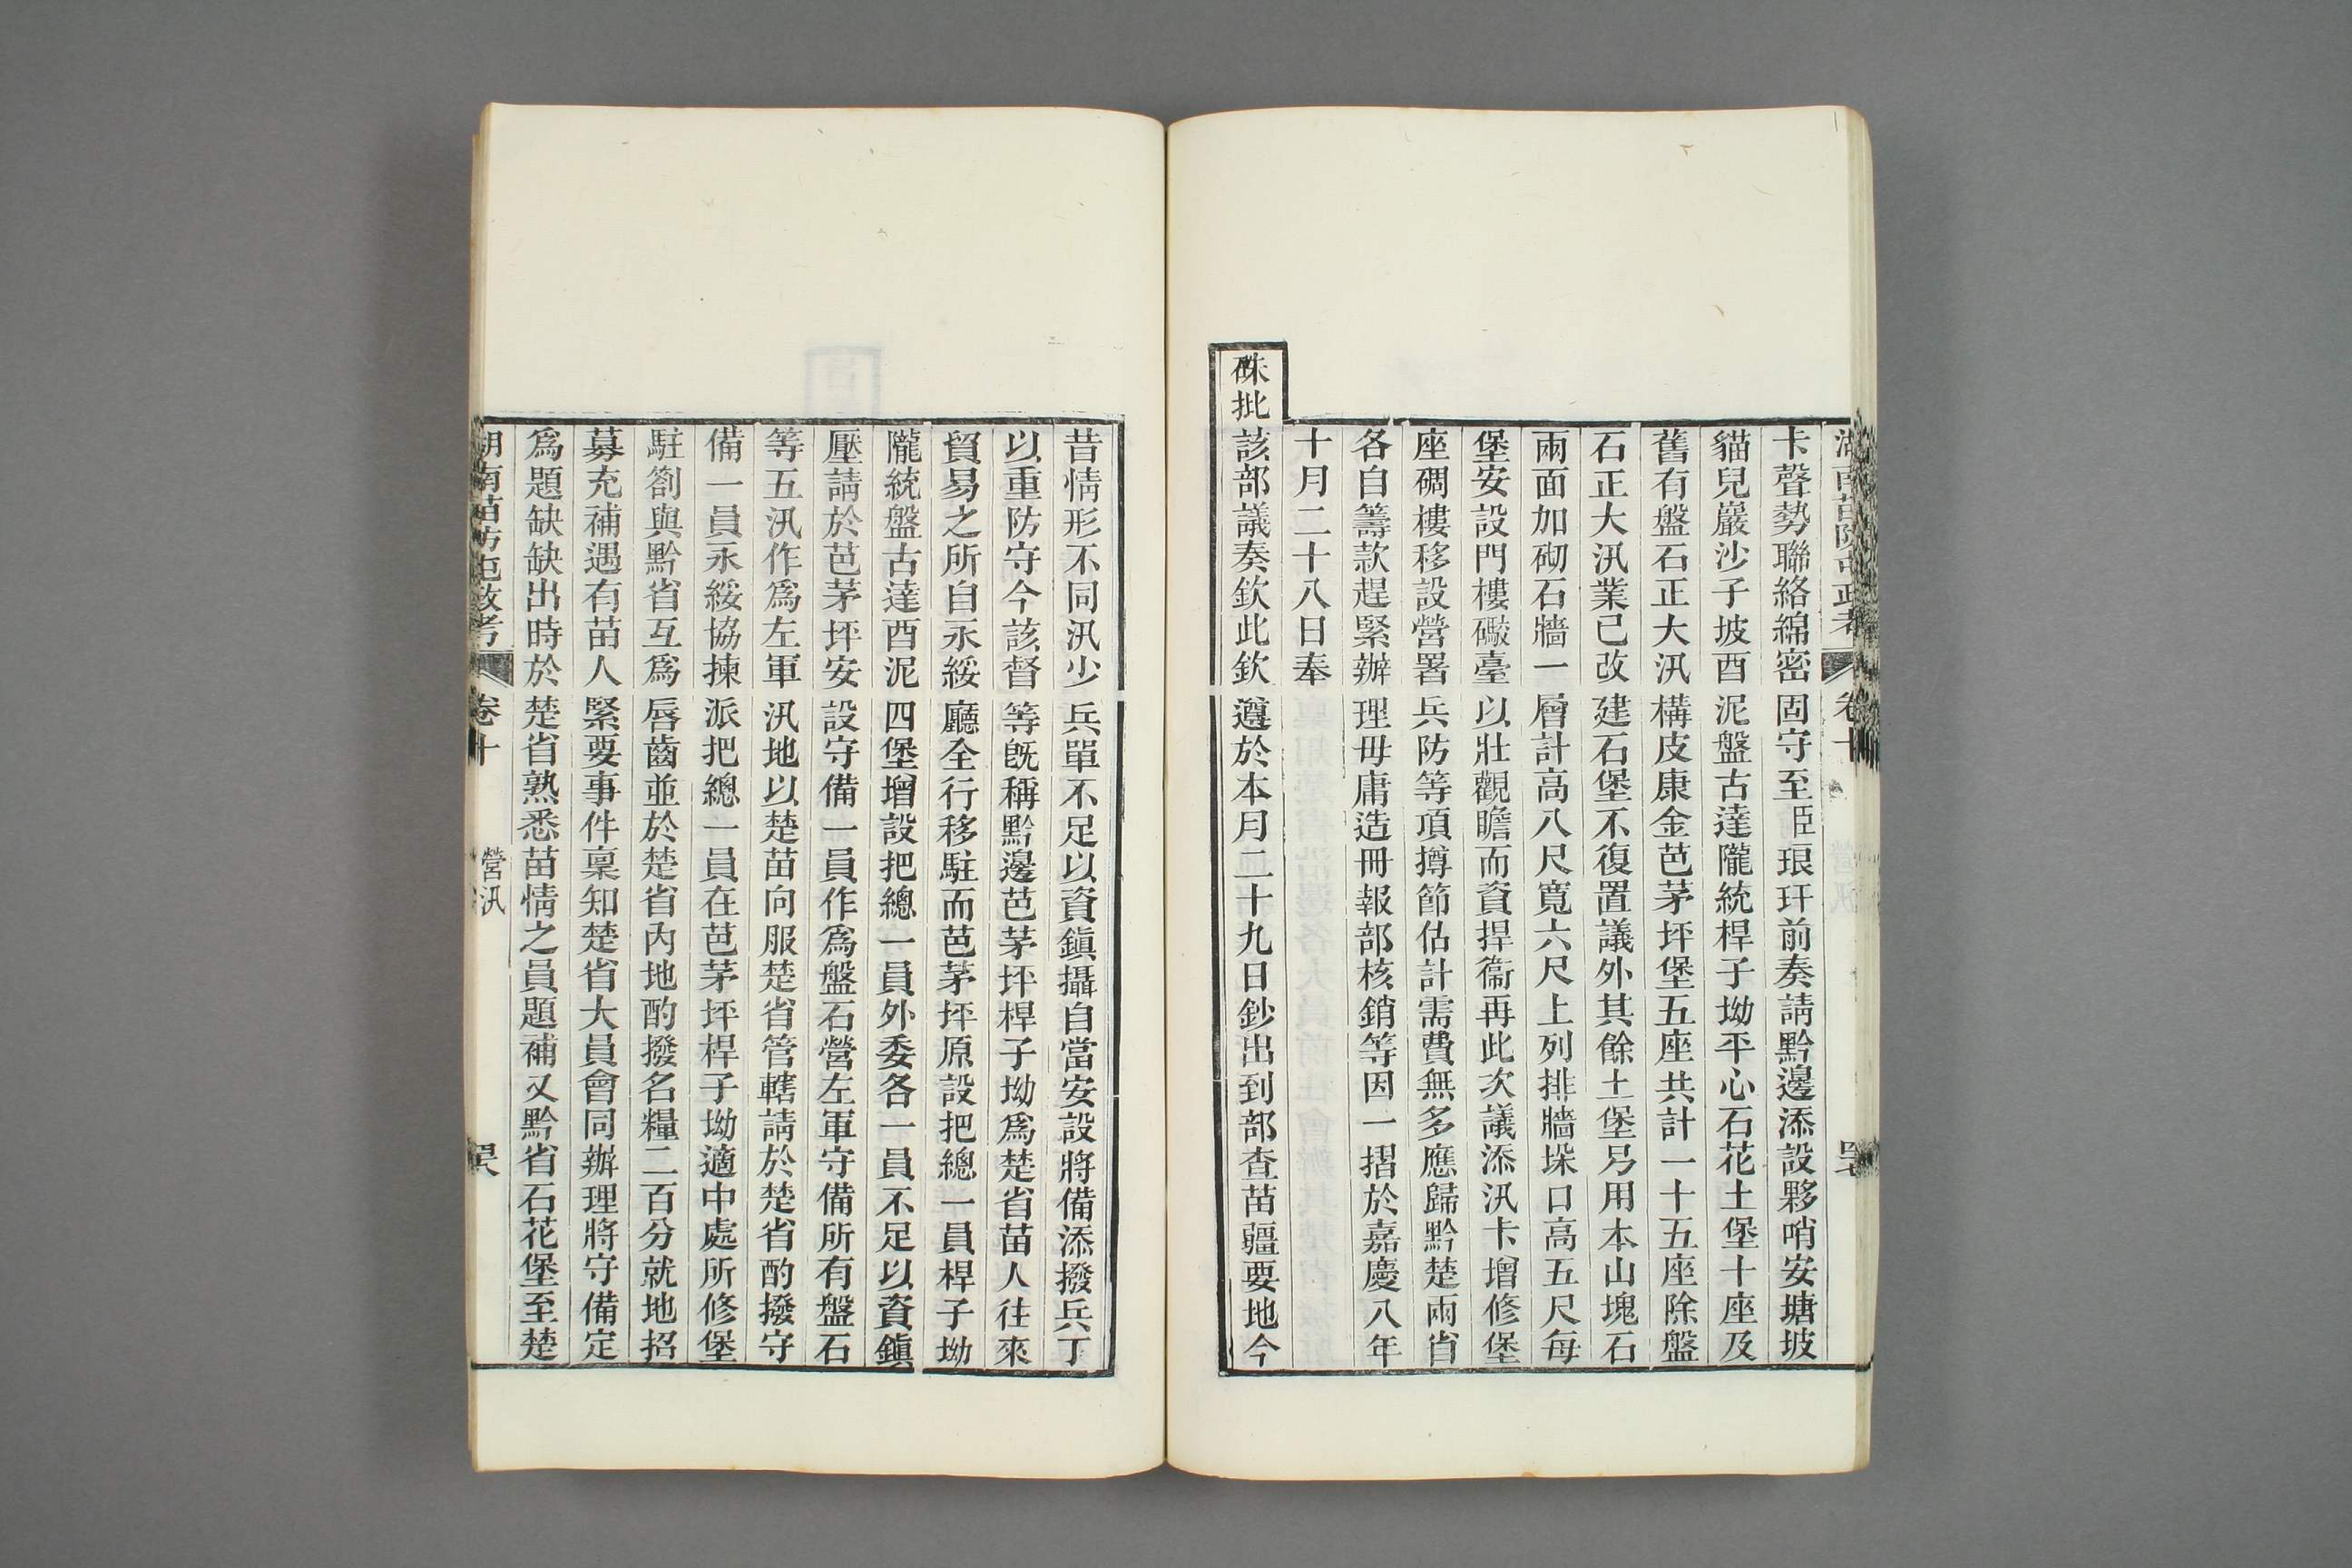 卡聲勢聯絡綿密固守至臣琅玕前奏請黔邊添設夥哨安塘坡
貓兒巖沙子坡酉泥盤古達隴統桿子坳平心石花土堡十座及
舊有盤石正大汛構皮康金芭茅坪堡五座共計一十五座除盤
石正大汛業已改建石堡不復置議外其餘土堡另用本山塊石
兩面加砌石牆一層計高八尺寬六尺上列排牆垛口高五尺每
堡安設門樓礮臺以壯觀瞻而資捍衞再此次議添汛卡增修堡
座碉樓移設營署兵防等項撙節估計需費無多應歸黔楚兩省
各自籌款趕緊辦理毋庸造冊報部核銷等因一摺於嘉慶八年
十月二十八日奉
硃批該部議奏欽此欽遵於本月二十九日鈔出到部查苗疆要地今
昔情形不同汛少兵單不足以資鎭攝自當安設將備添撥兵丁
以重防守今該督等旣稱黔邊芭茅坪桿子坳爲楚省苗人往來
貿易之所自永綏廳全行移駐而芭茅坪原設把總一員桿子坳
隴統盤古達酉泥四堡增設把總一員外委各一員不足以資鎭
壓請於芭茅坪安設守備一員作爲盤石營左軍守備所有盤石
等五汛作爲左軍汛地以楚苗向服楚省管轄請於楚省酌撥守
備一員永綏協揀派把總一員在芭茅坪桿子坳適中處所修堡
駐劄與黔省互爲唇齒並於楚省內地酌撥名糧二百分就地招
募充補遇有苗人緊要事件稟知楚省大員會同辦理將守備定
爲題缺缺出時於楚省熟悉苗情之員題補又黔省石花堡至楚
湖南苗防屯政考 卷十 營汛